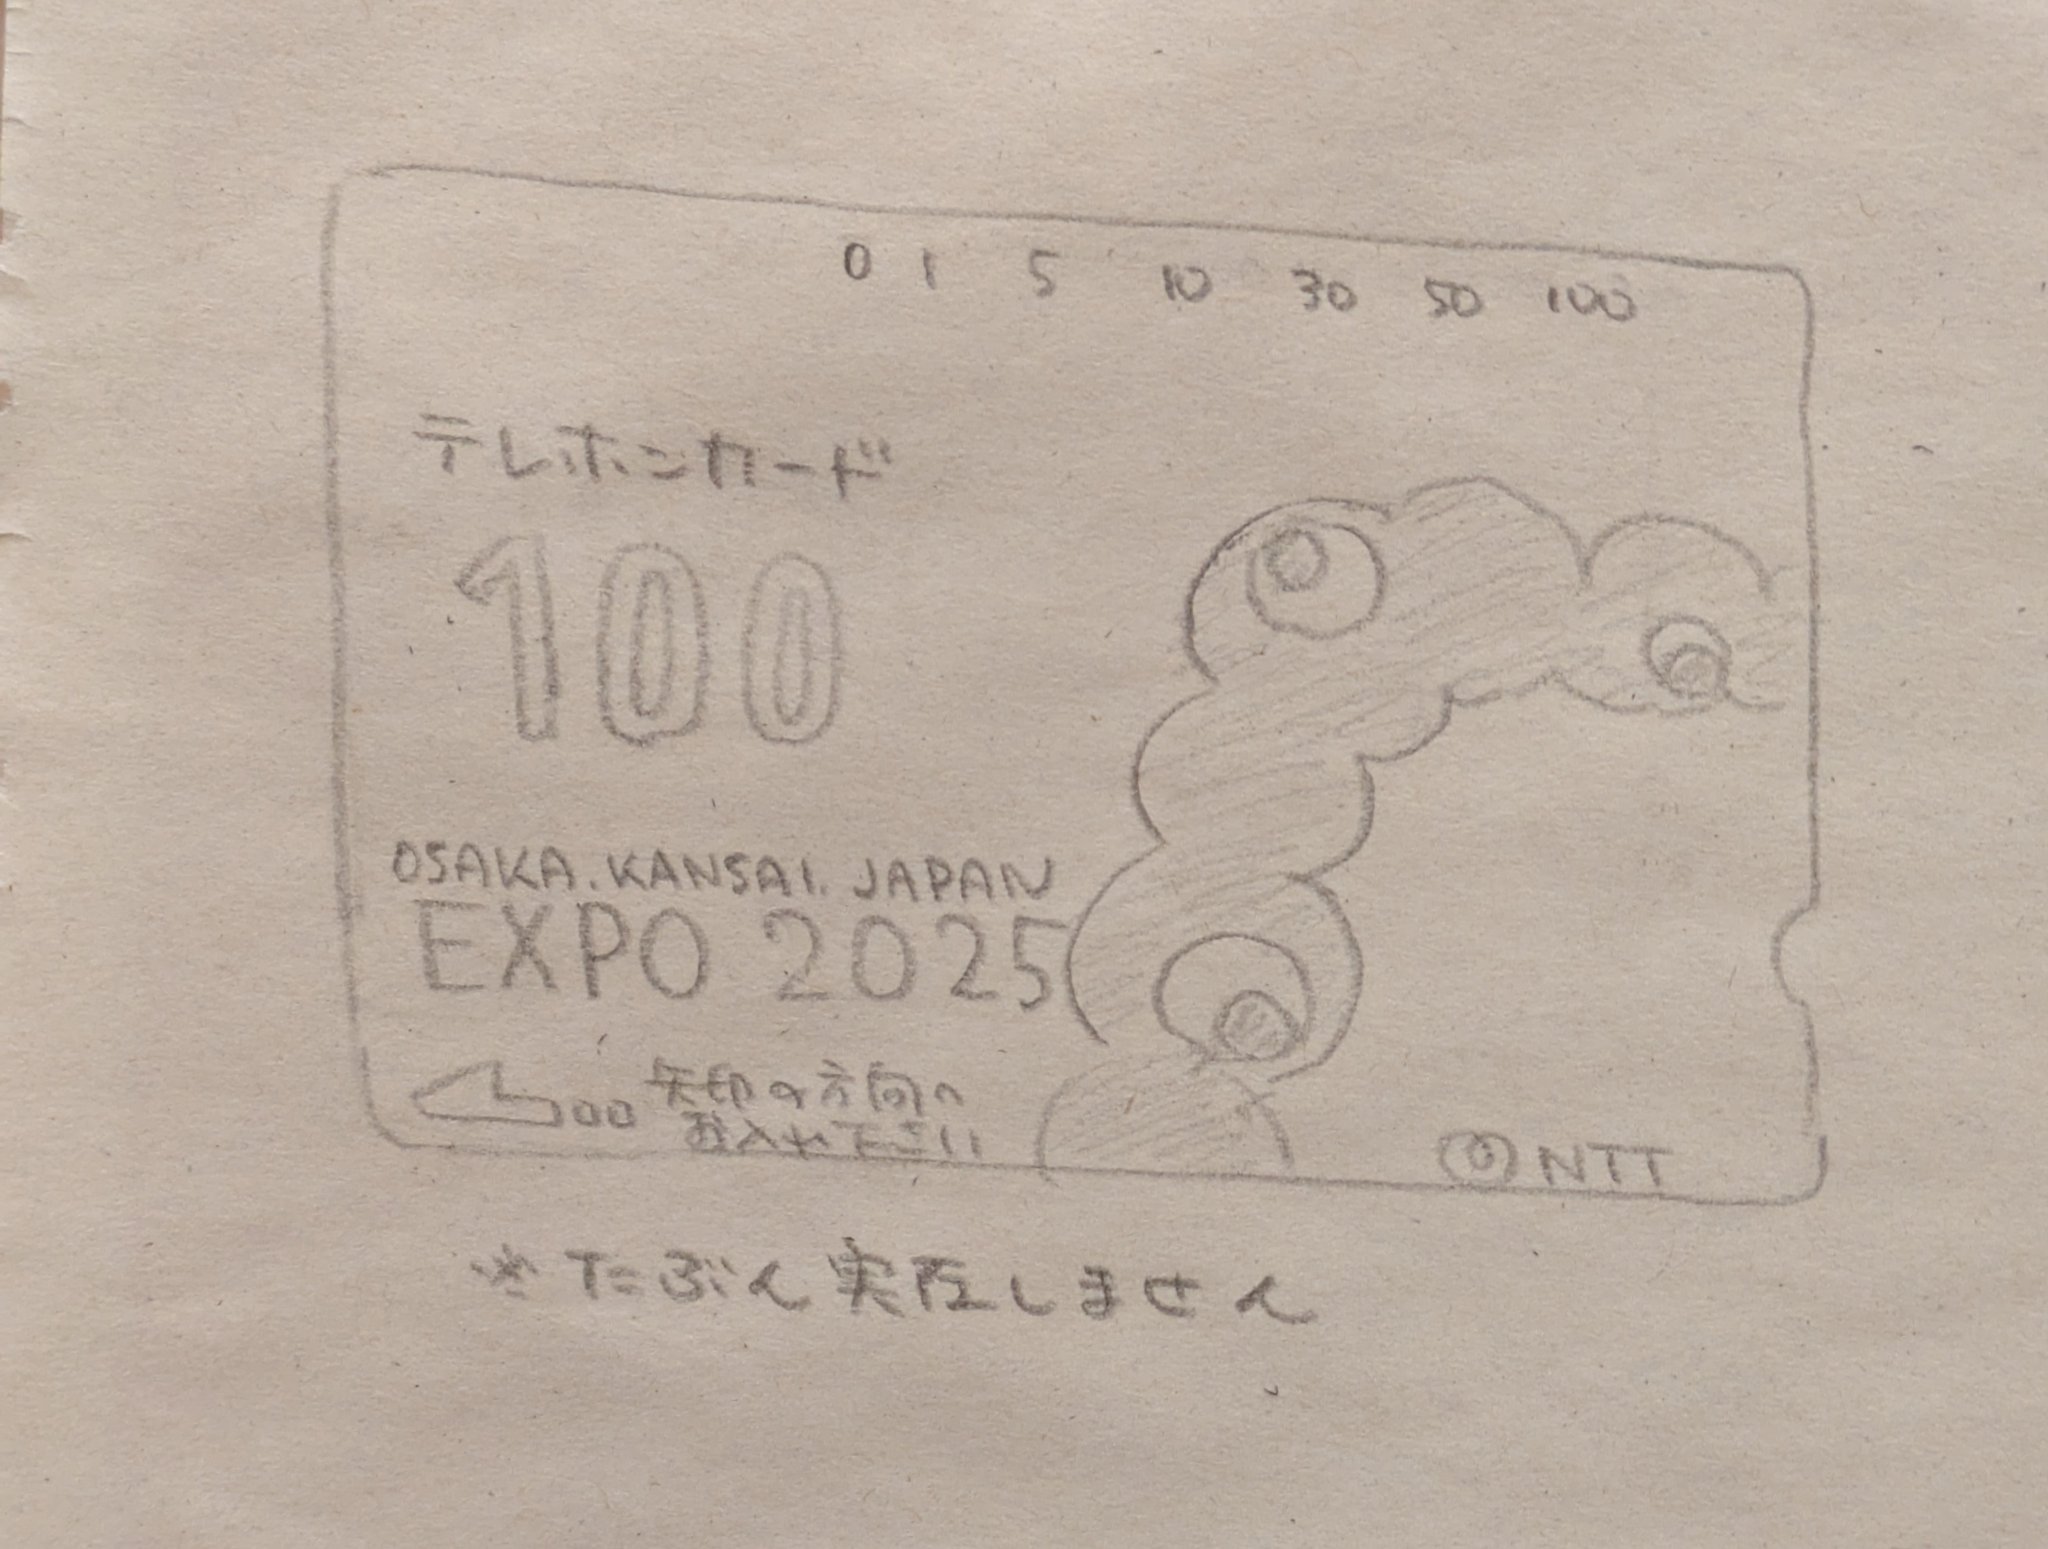 0 1 5 10 30 50 100
テレホンカード
100
OSAKA.KANSAI.JAPAN
EXPO 2025
矢印の方向へ
お入れ下さい
NTT
※たぶん実在しません